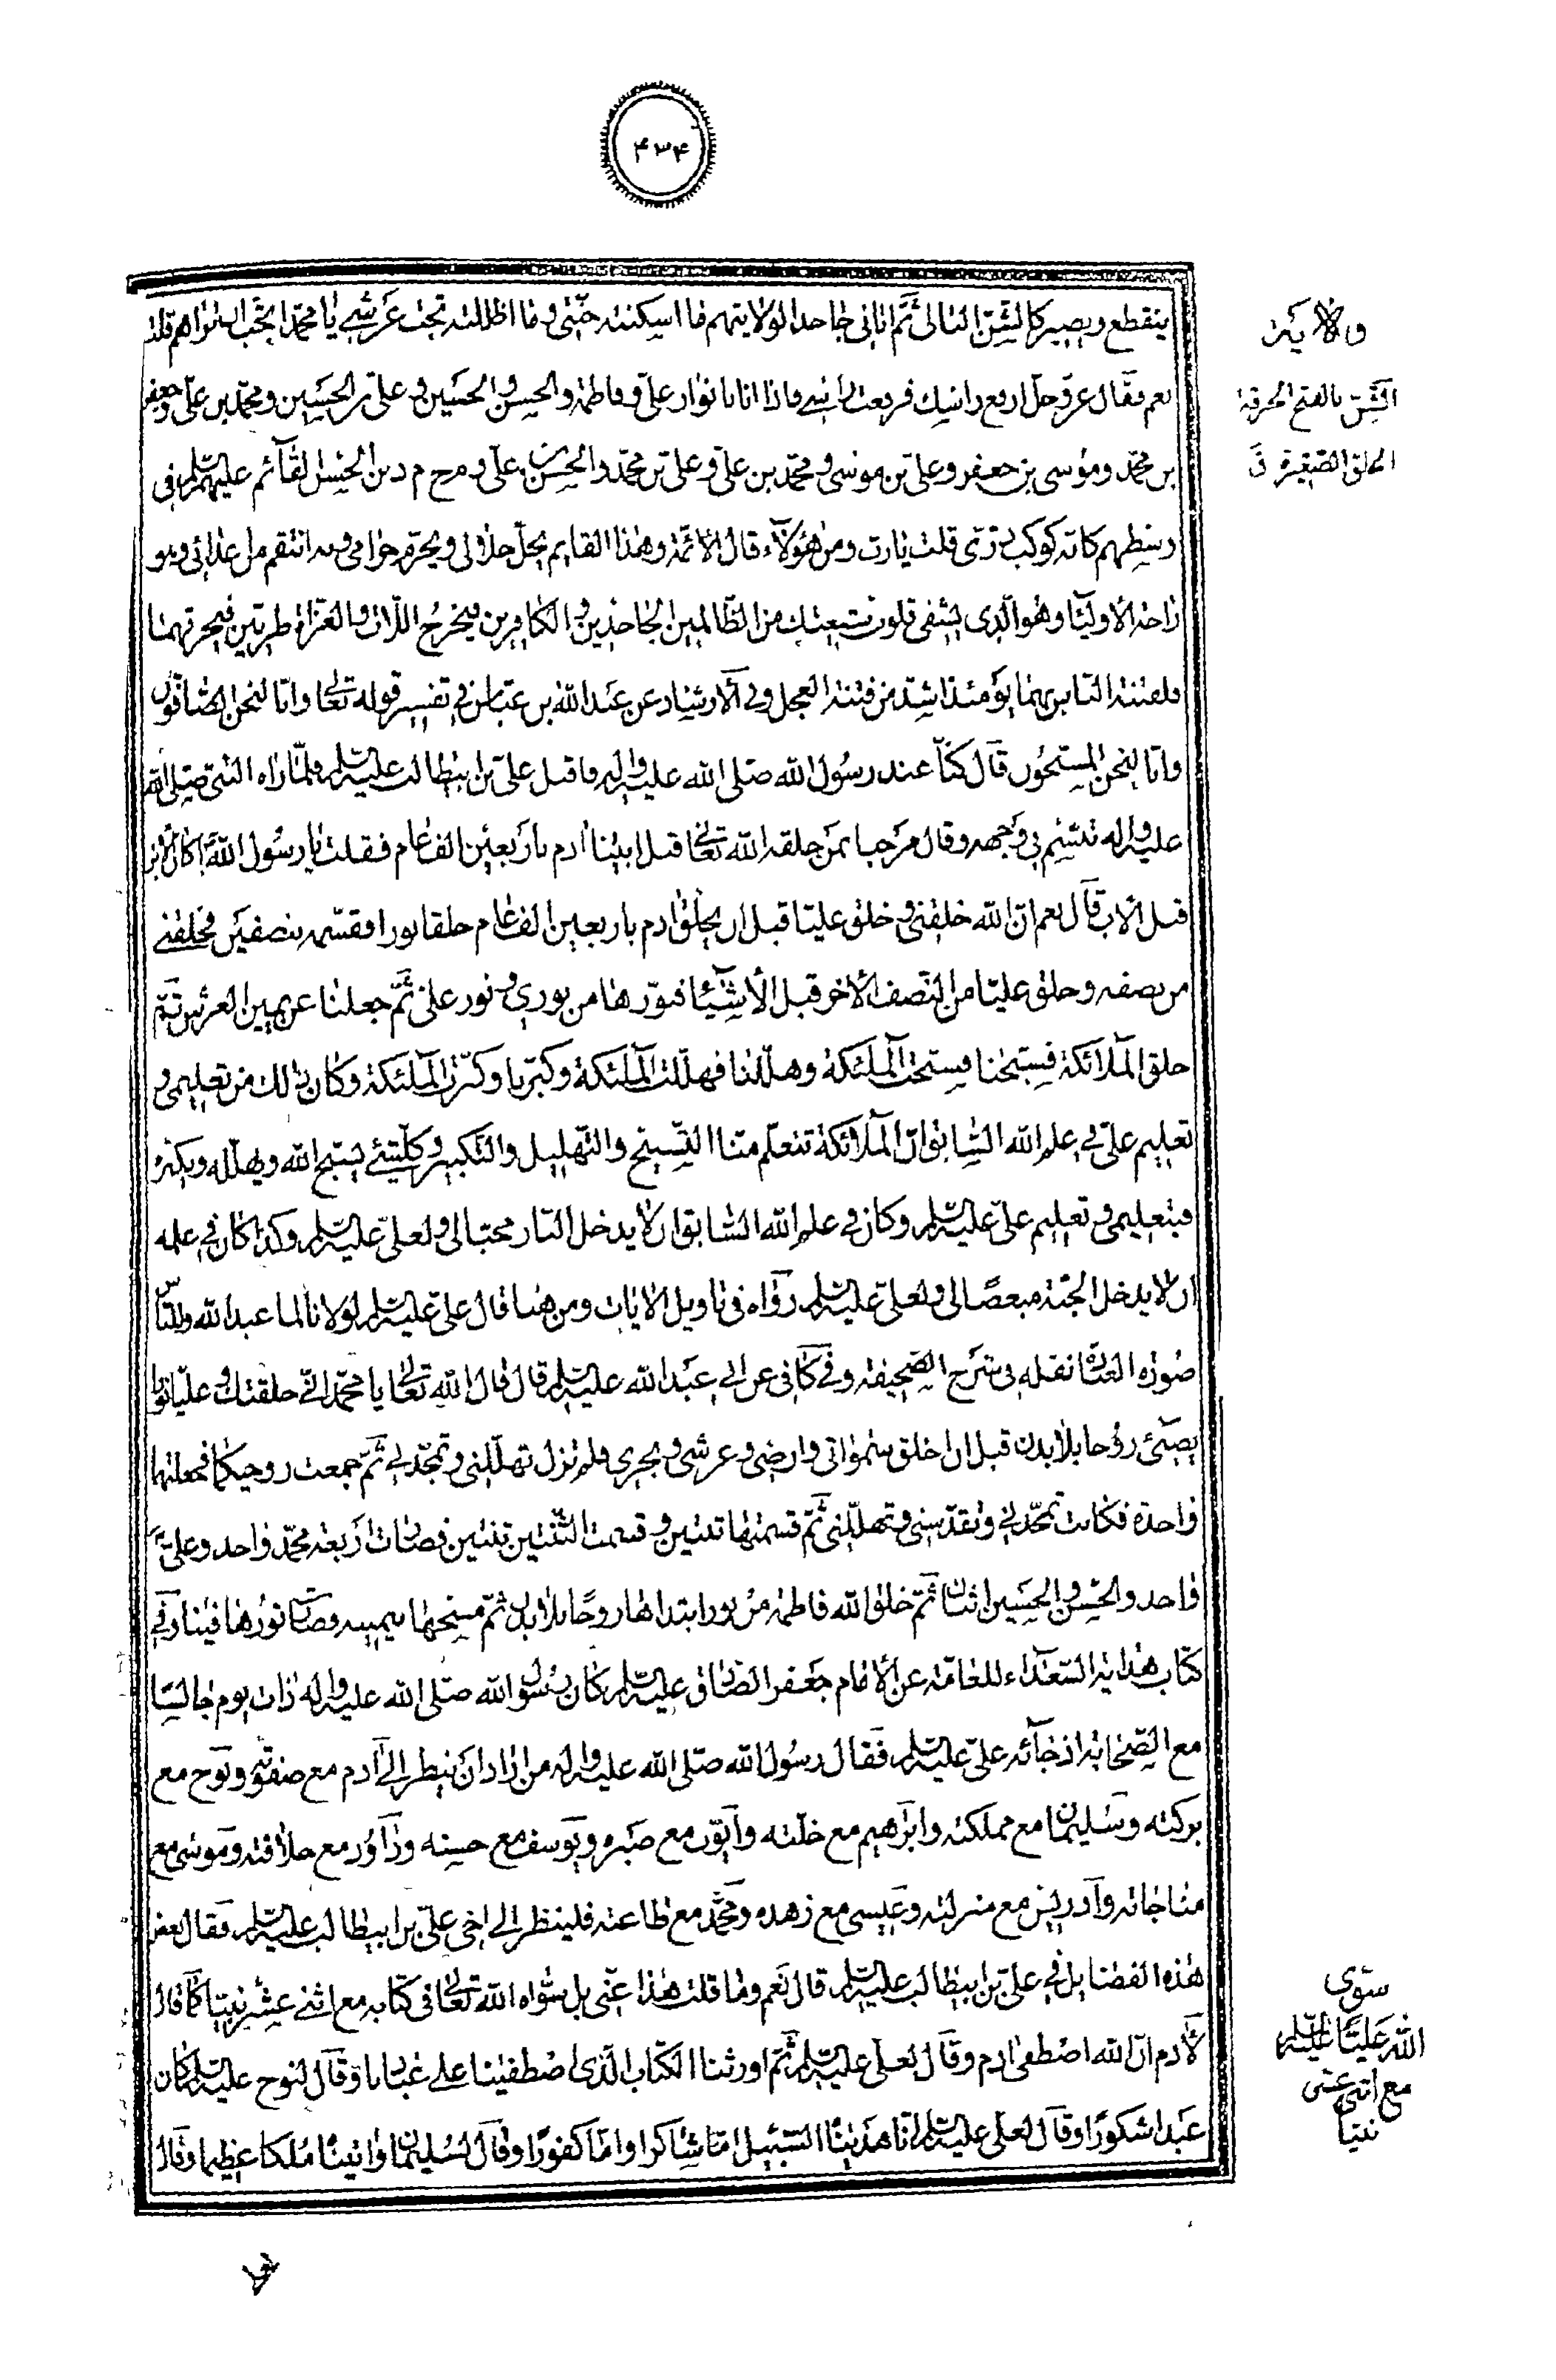 ۴۳۴
ينقطع ويصير كالشن البالى ثم اتانى جاحدا لولايتهم ما اسكنته جنتى وما اظللته تحت عرشى يا محمد اتحب ان تراهم قلت
نعم فقال عز وجل ارفع راسك فرفعت راسى فاذا انا بانوار على وفاطمة والحسن والحسين وعلى بن الحسين ومحمد بن على وجعفر
بن محمد وموسى بن جعفر وعلى بن موسى ومحمد بن على وعلى بن محمد والحسن بن على و م ح م د بن الحسن القائم عليهم السلم فى
وسطهم كانه كوكب درى قلت يارب ومن هؤلاء قال الائمة وهذا القايم يحل حلالى ويحرم حرامى وبه انتقم من اعدائى وهو
راحة الاوليا وهو الذى يشفى قلوب شيعتك من الظالمين والجاحدين والكافرين فيخرج اللات والعزى طريين فيحرقهما
فلفتنة الناس بهما يومئذ اشد من فتنة العجل وفى الارشاد عن عبد الله بن عباس فى تفسير قوله تعالى وانا لنحن الصافون
وانا لنحن المسبحون قال كنا عند رسول الله صلى الله عليه واله فاقبل على بن ابيطالب عليه السلم فلما راه النبى صلى الله
عليه واله تبسم فى وجهه وقال مرحبا بمن خلقه الله تعالى قبل ابينا ادم باربعين الف عام فقلت يا رسول الله اكان الابن
قبل الاب قال نعم ان الله خلقنى وخلق عليا قبل ان يخلق ادم باربعين الف عام خلق نورا فقسمه بنصفين فخلقنى
من نصفه وخلق عليا من النصف الاخر قبل الاشياء فنورها من نورى ونور على ثم جعلنا عن يمين العرش ثم
خلق الملائكة فسبحنا فسبحت الملئكة وهللنا فهللت الملئكة وكبرنا وكبرت الملئكة وكان ذلك من تعليمى و
تعليم على فى علم الله السابق ان الملائكة تتعلم منا التسبيح والتهليل والتكبير وكلشئ يسبح الله ويهلله ويكبره
فبتعليمى وتعليم على عليه السلم وكان فى علم الله السابق ان لا يدخل النار محبا لى ولعلى عليه السلم وكذا كان فى علمه
ان لا يدخل الجنة مبغضا لى ولعلى عليه السلم رواه فى تاويل الايات ومن هنا قال على عليه السلم لولا انا لما عبد الله وللناس
صورة نقله فى شرح الصحيفة وفى كافى عن ابى عبد الله عليه السلم قال قال الله تعالى يا محمد انى خلقتك وعليا نورا
يعنى روحا بلا بدن قبل ان اخلق سمواتى وارضى وعرشى وبحرى فلم تزل تهللنى وتمجدنى ثم جمعت روحيكما فجعلتهما
واحدة فكانت تمجدنى وتقدسنى وتهللنى ثم قسمتها ثنتين وقسمت الثنتين ثنتين فصارت اربعة محمد واحد وعلى
واحد والحسن والحسين اثنان ثم خلق الله فاطمة من نور ابتداها روحا بلا بدن ثم مسحها بيمينه فصار نورها فينا وفى
كتاب هداية السعداء للعامة عن الامام جعفر الصادق عليه السلم كان رسول الله صلى الله عليه واله ذات يوم جالسا
مع الصحابة اذ جائه على عليه السلم فقال رسول الله صلى الله عليه واله من اراد ان ينظر الى ادم مع صفوته ونوح مع
بركته وسليمان مع مملكته وابرهيم مع خلته وايوب مع صبره ويوسف مع حسنه وداود مع خلافته وموسى مع
مناجاته وادريس مع منزلته وعيسى مع زهده ومحمد مع طاعته فلينظر الى اخى على بن ابيطالب عليه السلم فقال
هذه الفضايل فى على بن ابيطالب عليه السلم قال نعم وما قلت هذا عنى بل سواه الله تعالى فى كتابه مع اثنى عشر نبيا كما قال
لادم ان الله اصطفى ادم وقال لعلى عليه السلم ثم اورثنا الكتاب الذى اصطفينا على عبادنا وقال لنوح عليه السلم كان
عبدا شكورا وقال لعلى عليه السلم انا هديناه السبيل اما شاكرا واما كفورا وقال لسليمان واتينا ملكا عظيما وقال
الشن بالفتح
الخلق الصغيرة ق
سوى
الله عليا عليه السلم
مع اثنى عشر
نبيا